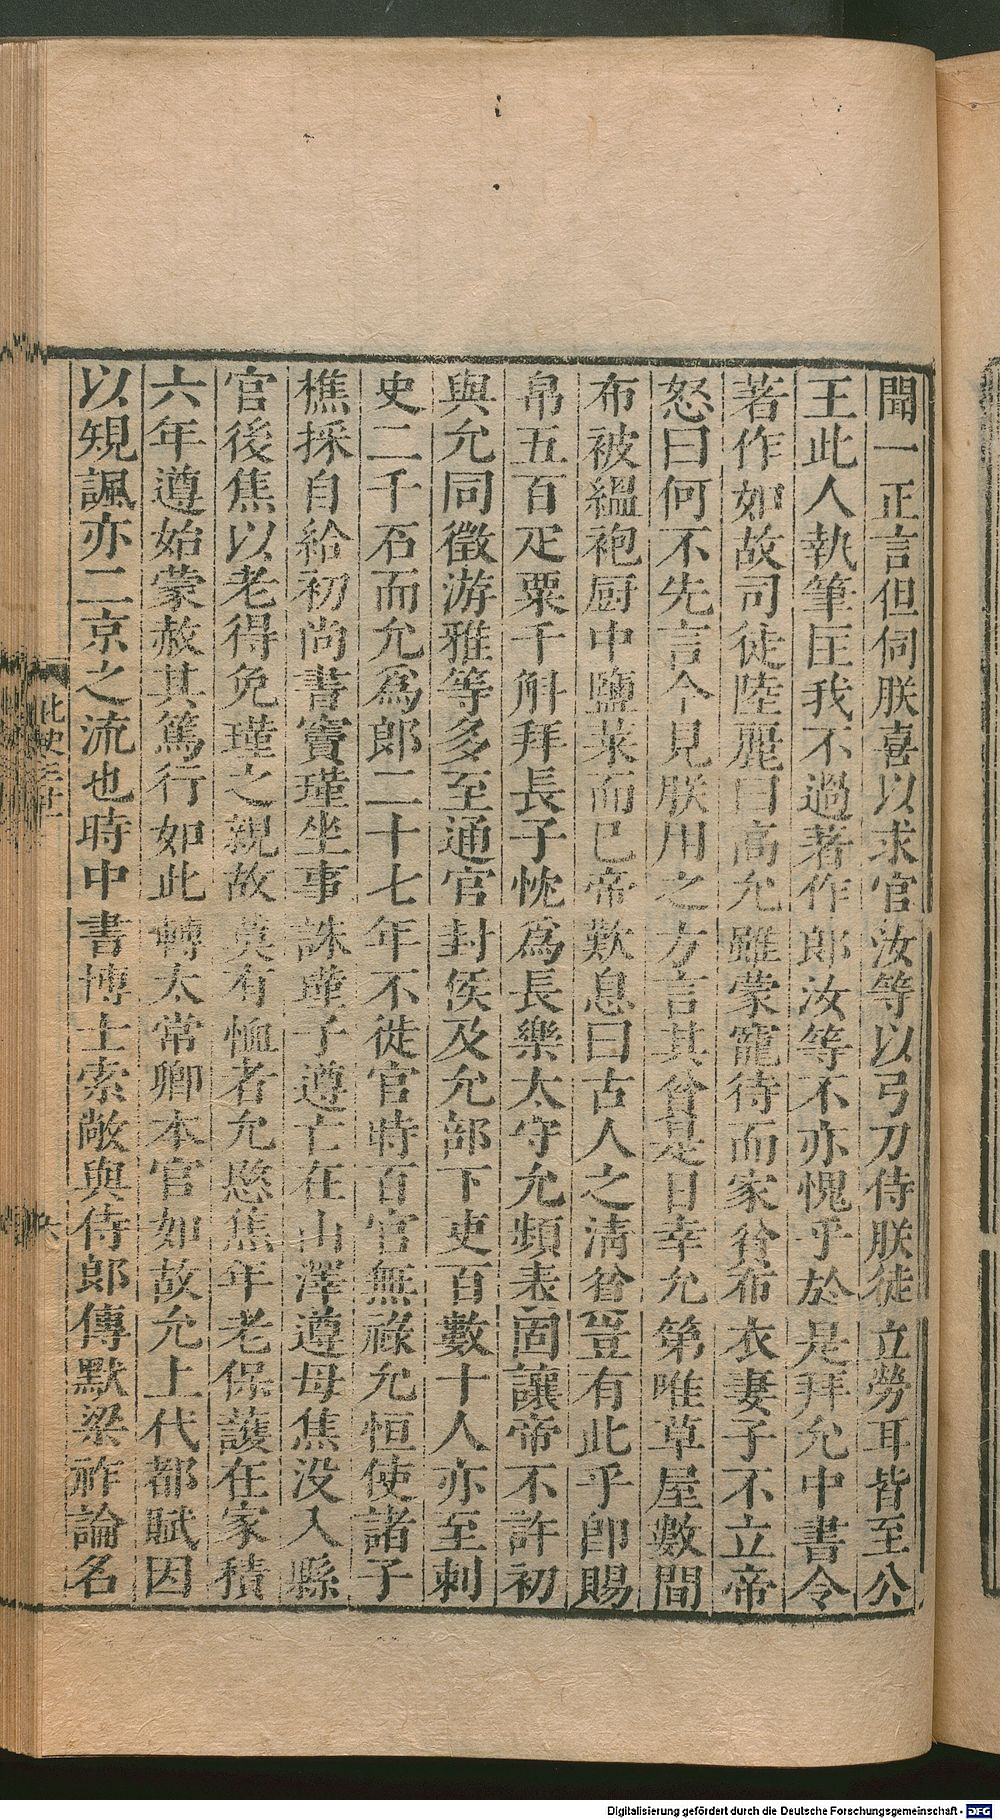 聞一正言但伺朕喜以求官汝等以弓刀侍朕徒立勞耳皆至公
王此人執筆匡我不過著作郎汝等不亦愧乎於是拜允中書令
著作如故司徒陸麗曰高允雖蒙寵待而家貧布衣妻子不立帝
怒曰何不先言今見朕用之方言其貧是日幸允第唯草屋數間
布被縕袍厨中鹽菜而已帝歎息曰古人之清貧豈有此乎即賜
帛五百疋粟千斛拜長子忱爲長樂太守允頻表固讓帝不許初
與允同徵游雅等多至通官封侯及允部下吏百數十人亦至刺
史二千石而允爲郎二十七年不徙官時百官無祿允恒使諸子
樵採自給初尚書竇瑾坐事誅瑾子遵亡在山澤遵母焦没入縣
官後焦以老得免瑾之親故莫有恤者允愍焦年老保護在家積
六年遵始蒙赦其篤行如此轉太常卿本官如故允上代都賦因
以規諷亦二京之流也時中書博士索敞與侍郎傳默梁祚論名
北史三十一
六
Digitalisierung gefördert durch die Deutsche Forschungsgemeinschaft - DFG